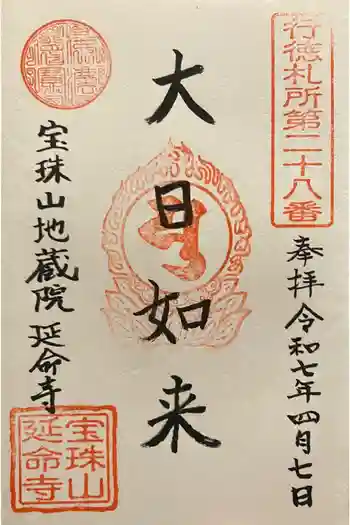 行徳札所第二十八番
奉拝令和七年四月七日
大日如来
宝珠山地蔵院延命寺
宝珠山
延命寺